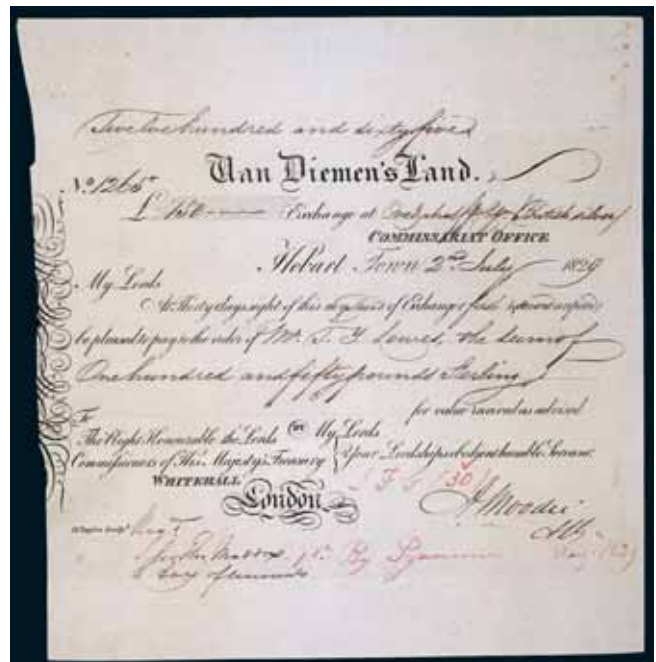 Twelve hundred and sixty five
Van Diemen's Land.
No. 1265
£ 150 Exchange at One & half p Ct. British silver
COMMISSARIAT OFFICE
Hobart Town 2nd July 1829
My Lords
At Thirty days sight of this of Exchange
be pleased to pay to the order of Mr. T. Y. Lowes, the sum of
One hundred and fifty pounds Sterling
for value received as advised
To
The Right Honourable the Lords My Lords
Commissioners of His Majesty's Treasury Your Lordships obedient humble Servant
WHITEHALL
London
£ 150
J Moodie